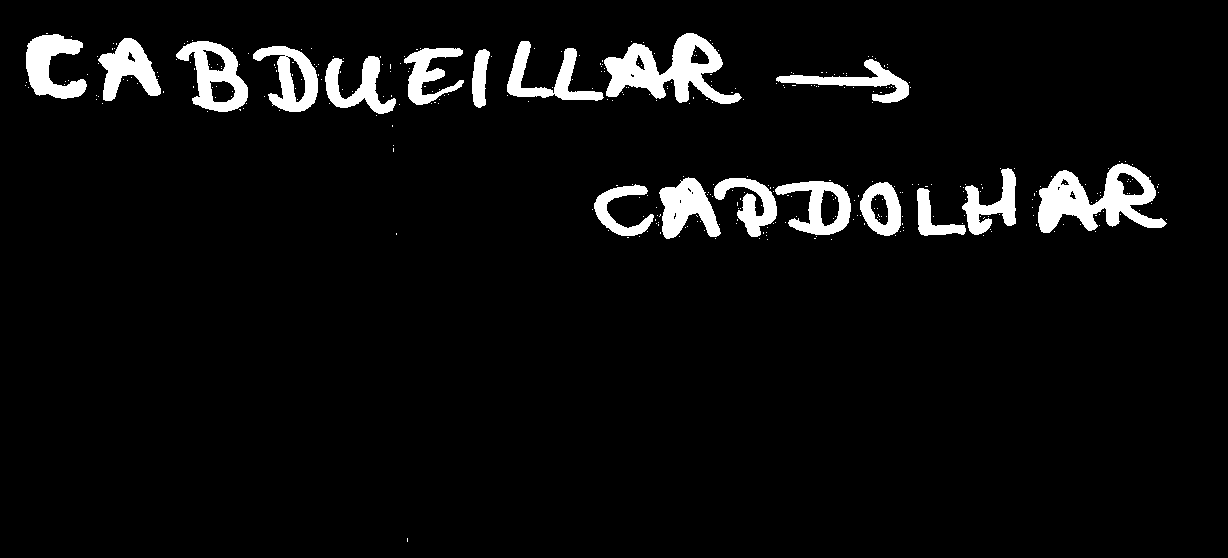 CABDUEILLAR →
CAPDOLHAR